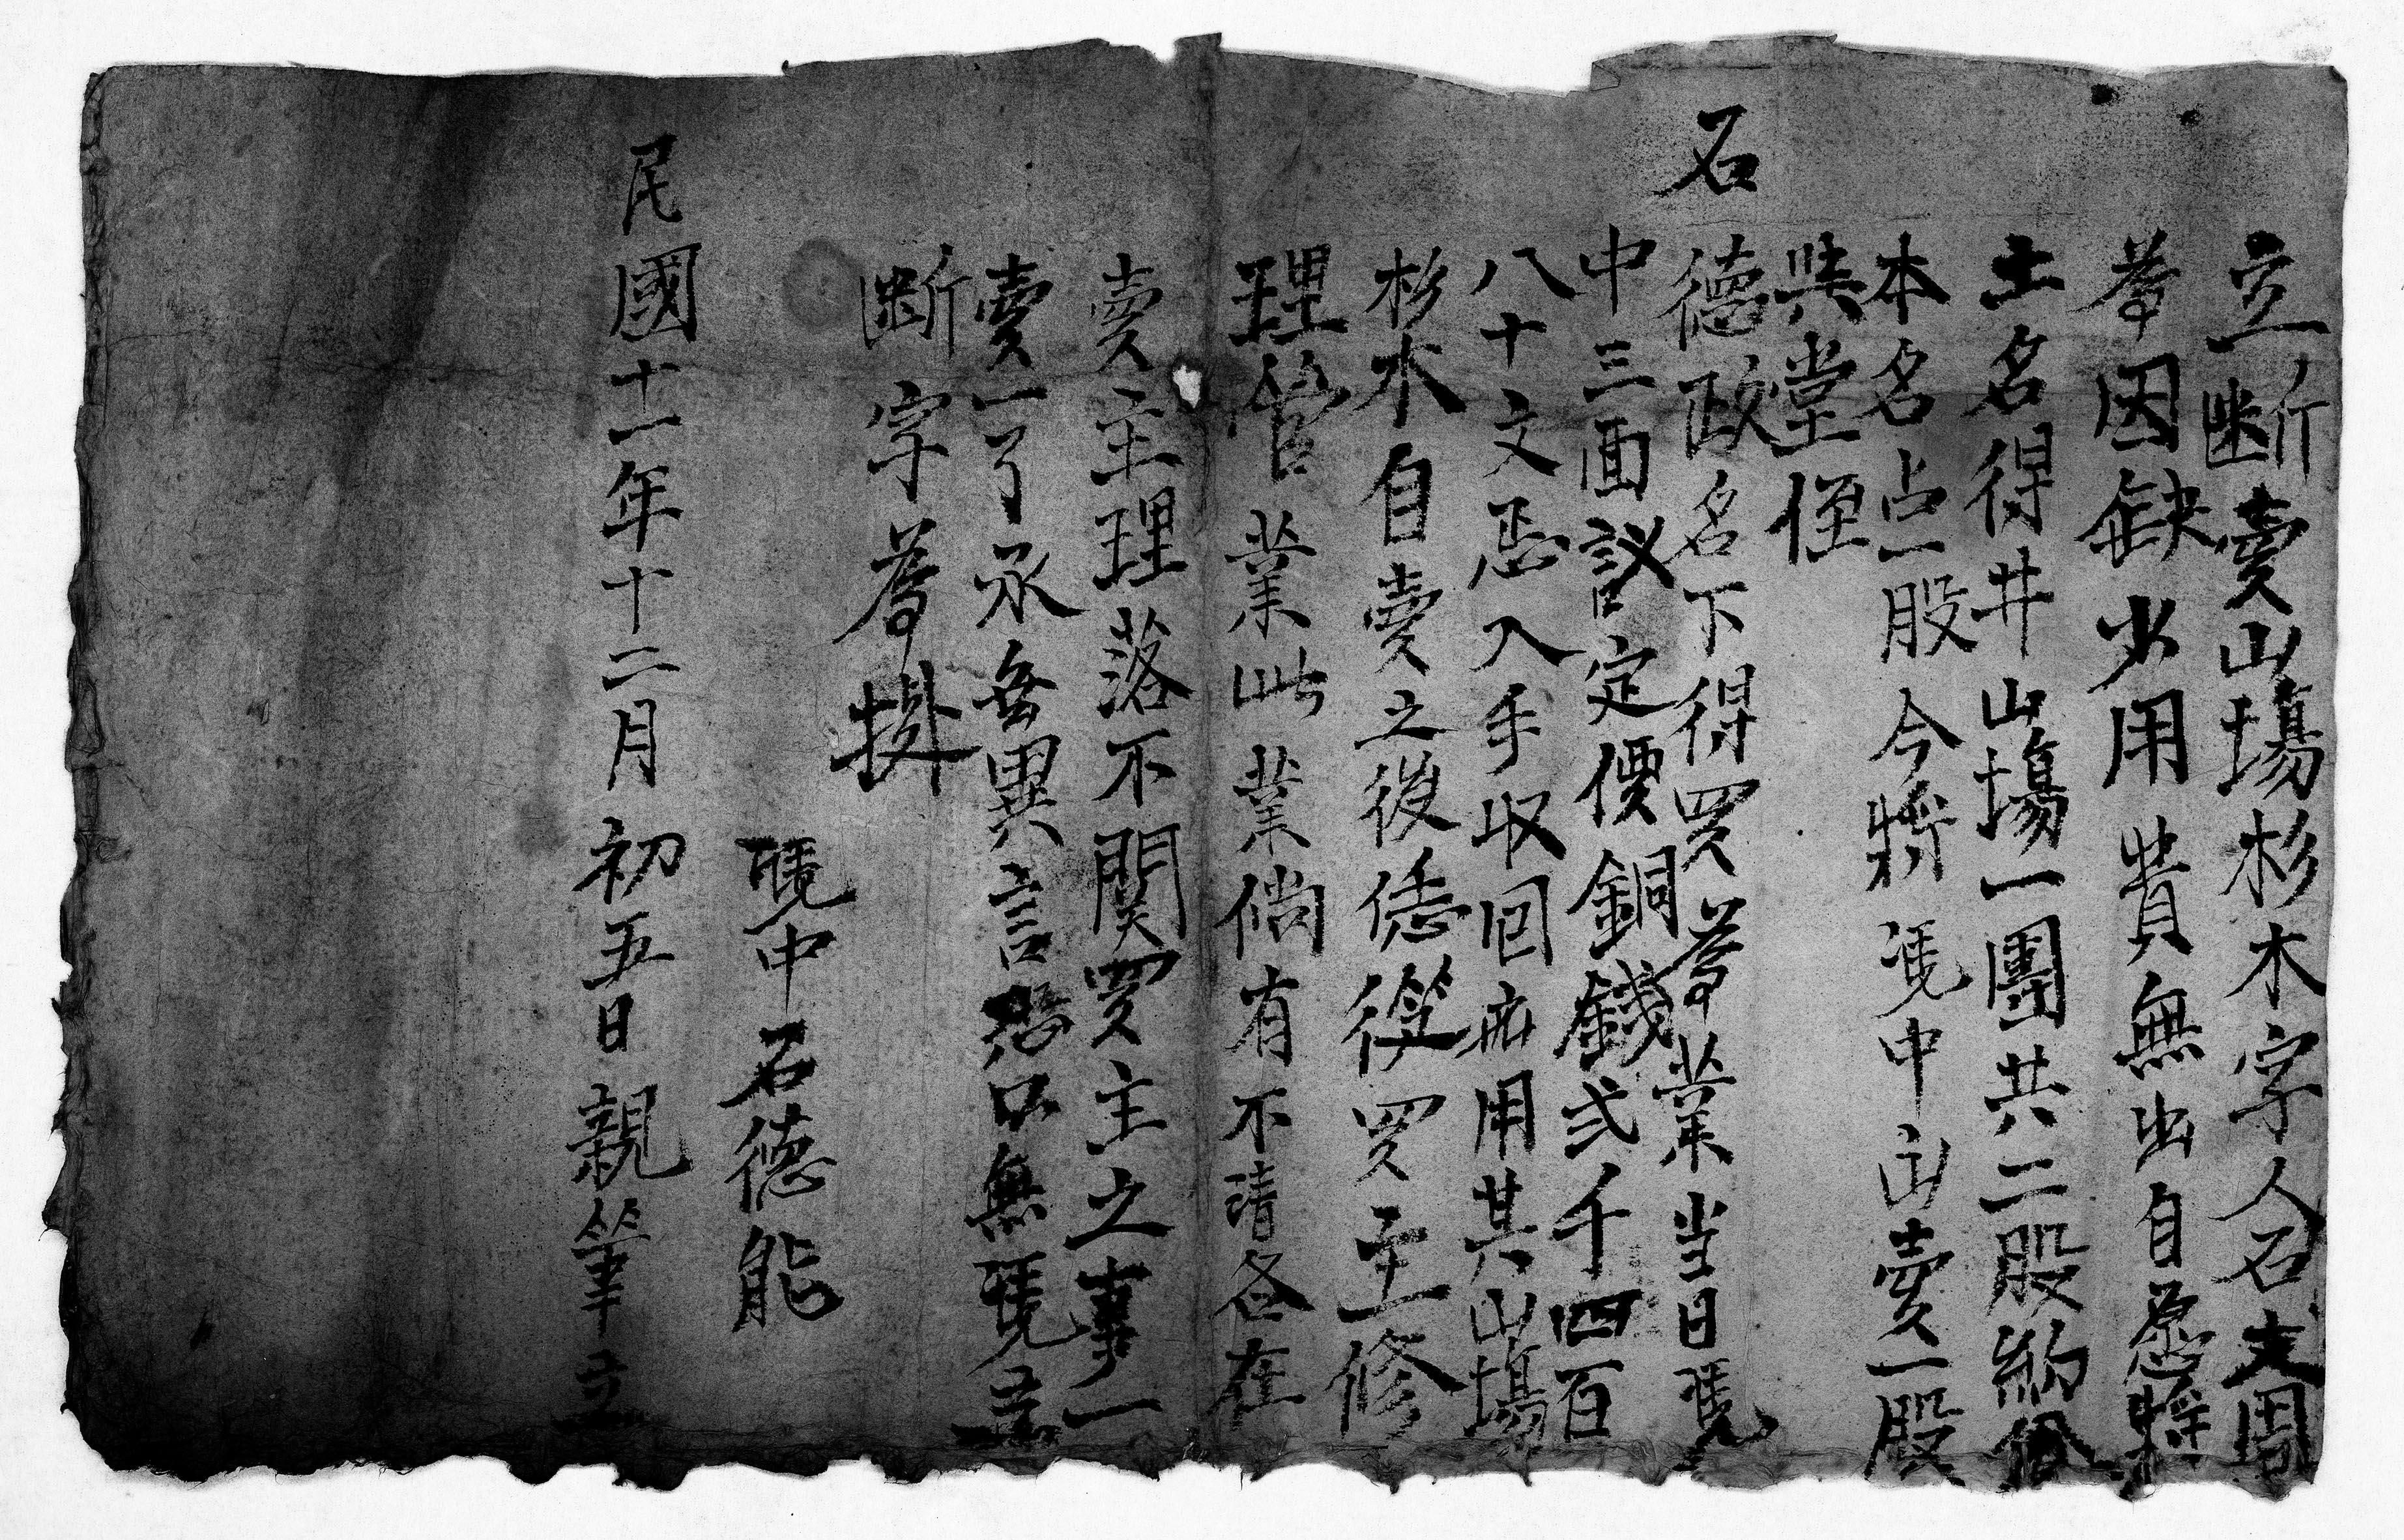 立断賣山場杉木字人石支周
為因缺少用費無出自愿將
土名得井山場一團共二股約分
本名占一股今將凴中出賣一股
與堂侄
石德政名下得買為業当日凴
中三面議定價銅錢弍千四百
八十文悉入手収回応用其山場
杉木自賣之後恁從買主修
理管業此業倘有不清各在
賣主理落不關買主之事一
賣一了承無異言恐口無凴立
断字為據
凴中石德能
民國十一年十二月初五日親筆立